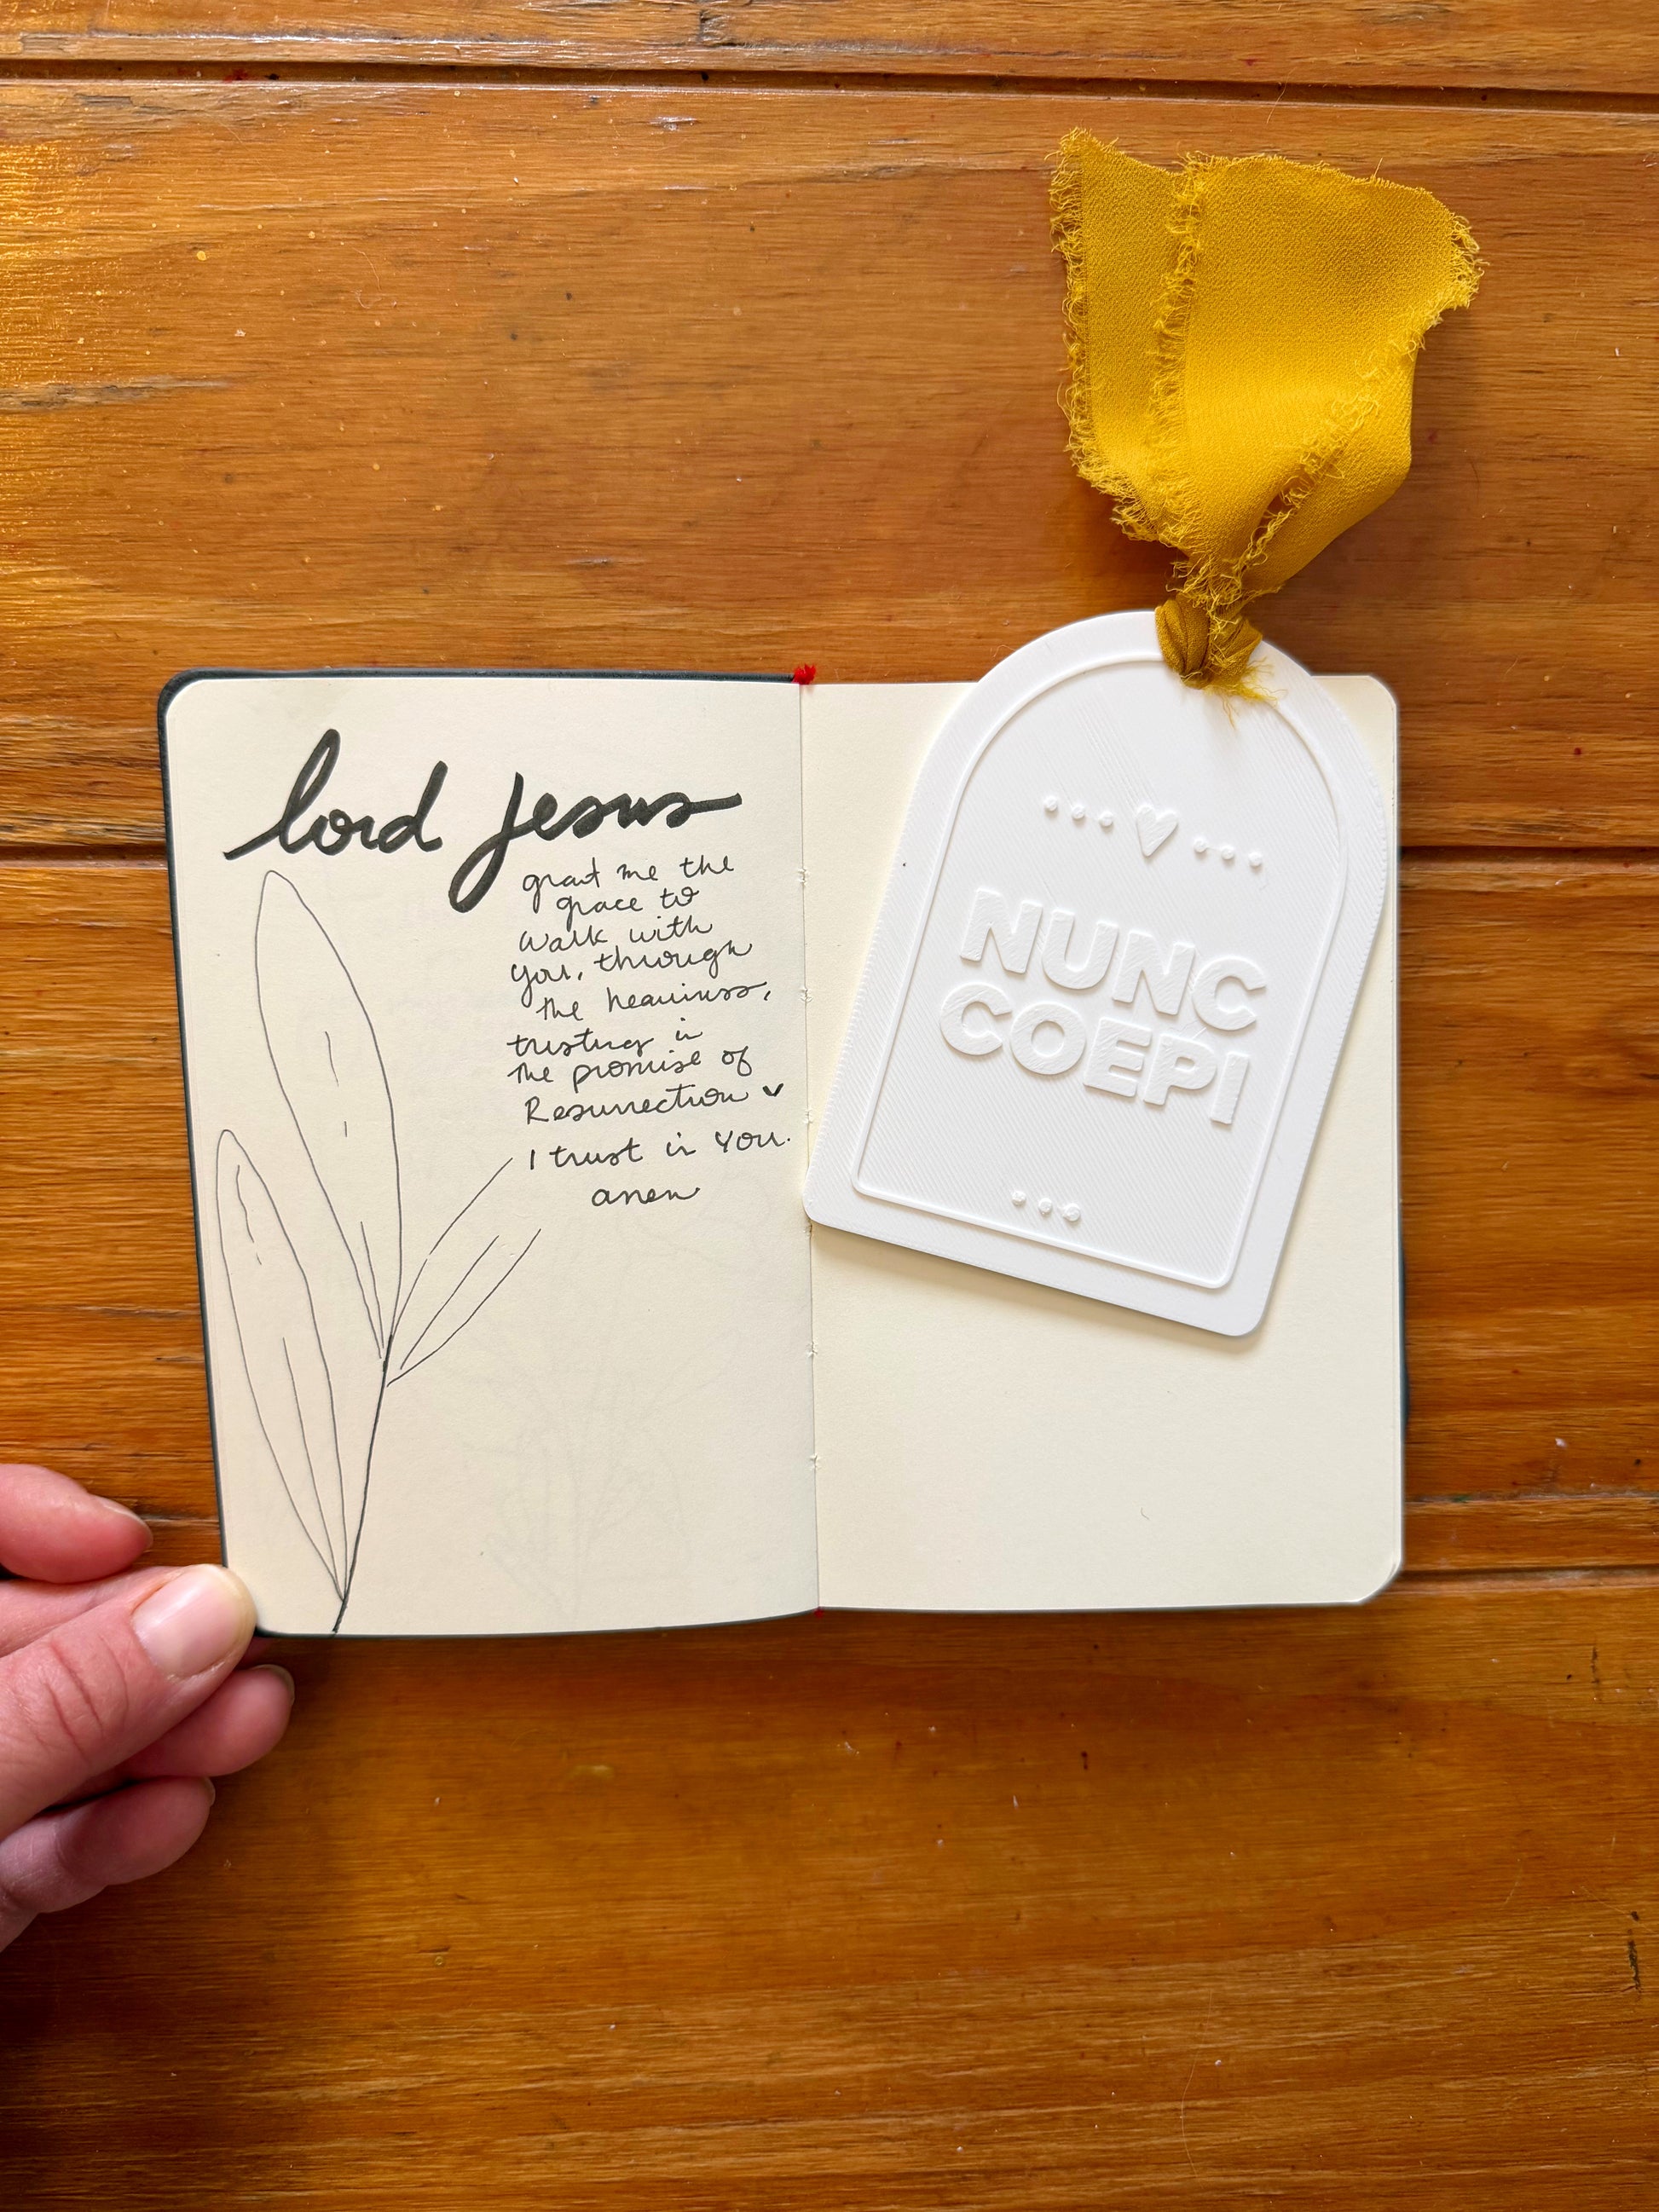 lord Jesus
grant me the
grace to
walk with
you, through
the heaviness,
trusting in
the promise of
Resurrection
I trust in You.
amen
NUNC
COEPI